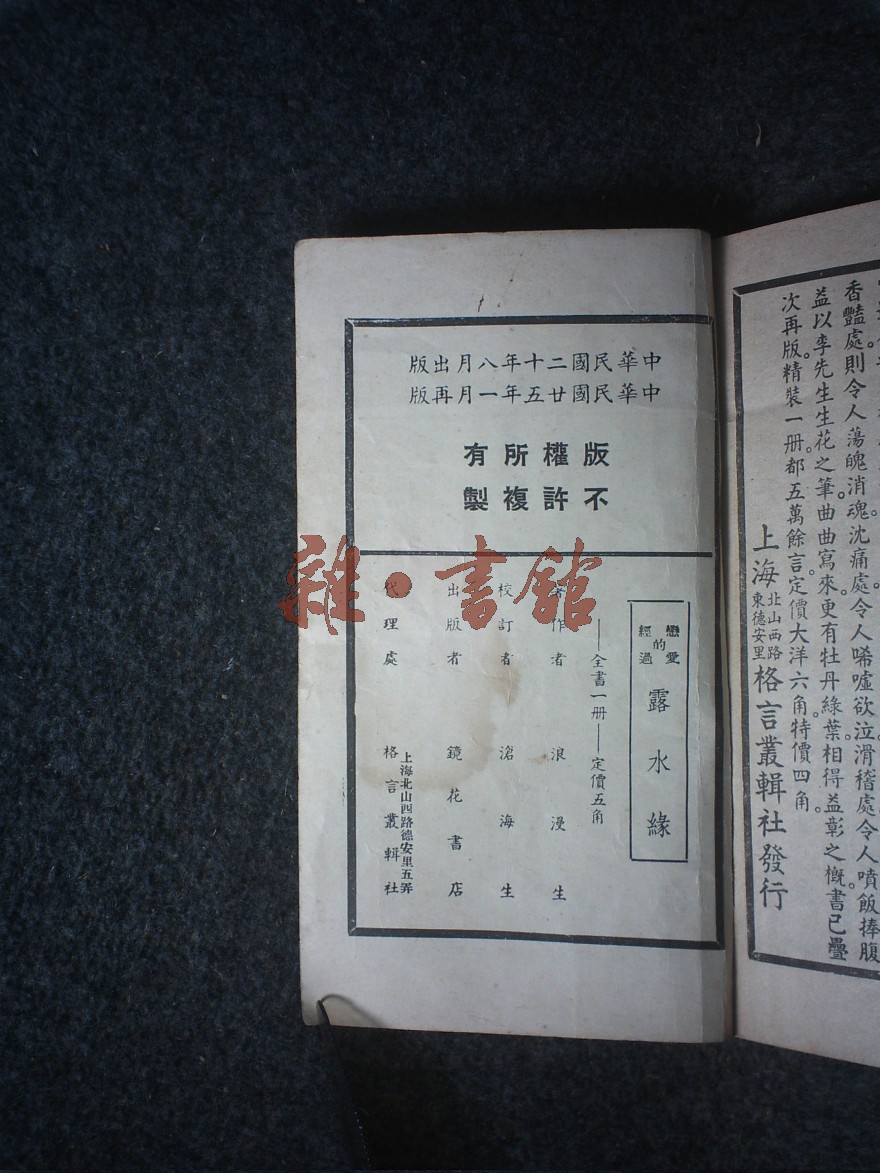 中華民國二十年八月出版
中華民國廿五年一月再版
版權所有
不許複製
戀愛的經過
露水緣
——全書一册——定價五角
著作者 浪漫生
校訂者 滄海生
出版者 鏡花書店
代理處 上海北山西路德安里五弄 格言叢輯社
香豔處則令人蕩魄消魂。沈痛處令人唏噓欲泣。滑稽處令人噴飯捧腹
益以李先生生花之筆。曲曲寫來。更有牡丹綠葉。相得益彰之概。書已疊
次再版。精裝一册。都五萬餘言。定價大洋六角。特價四角。
上海北山西路東德安里格言叢輯社發行
雜·書館